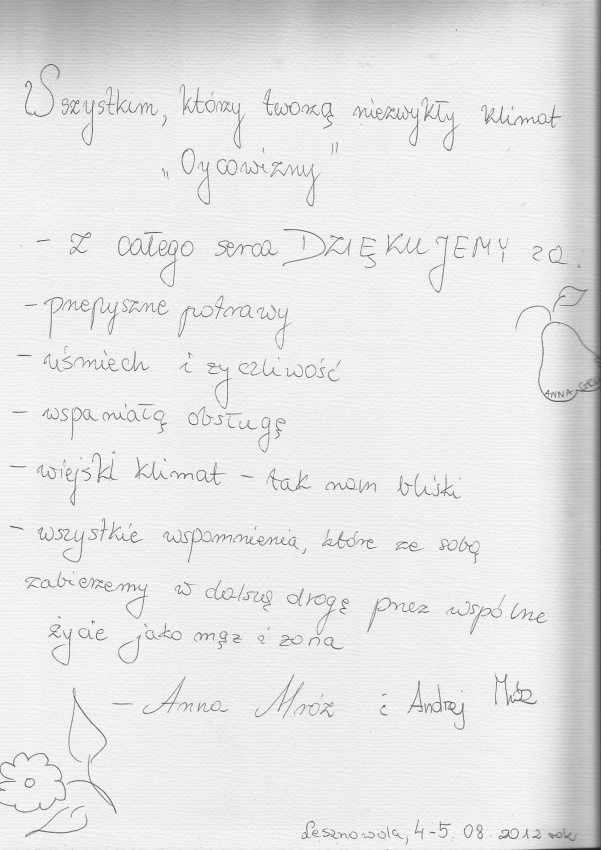 Wszystkim, którzy tworzą niezwykły klimat
„Oycowizny"
- Z całego serca DZIĘKUJEMY za.
- przepyszne potrawy
- uśmiech i życzliwość
- wspaniałą obsługę
- wiejski klimat - tak nam bliski
- wszystkie wspomnienia, które ze sobą
zabierzemy w dalszą drogę przez wspólne
życie jako mąż i żona
- Anna Mróz i Andrzej Mróz
ANNA
Lesznowola, 4-5. 08. 2012 roku